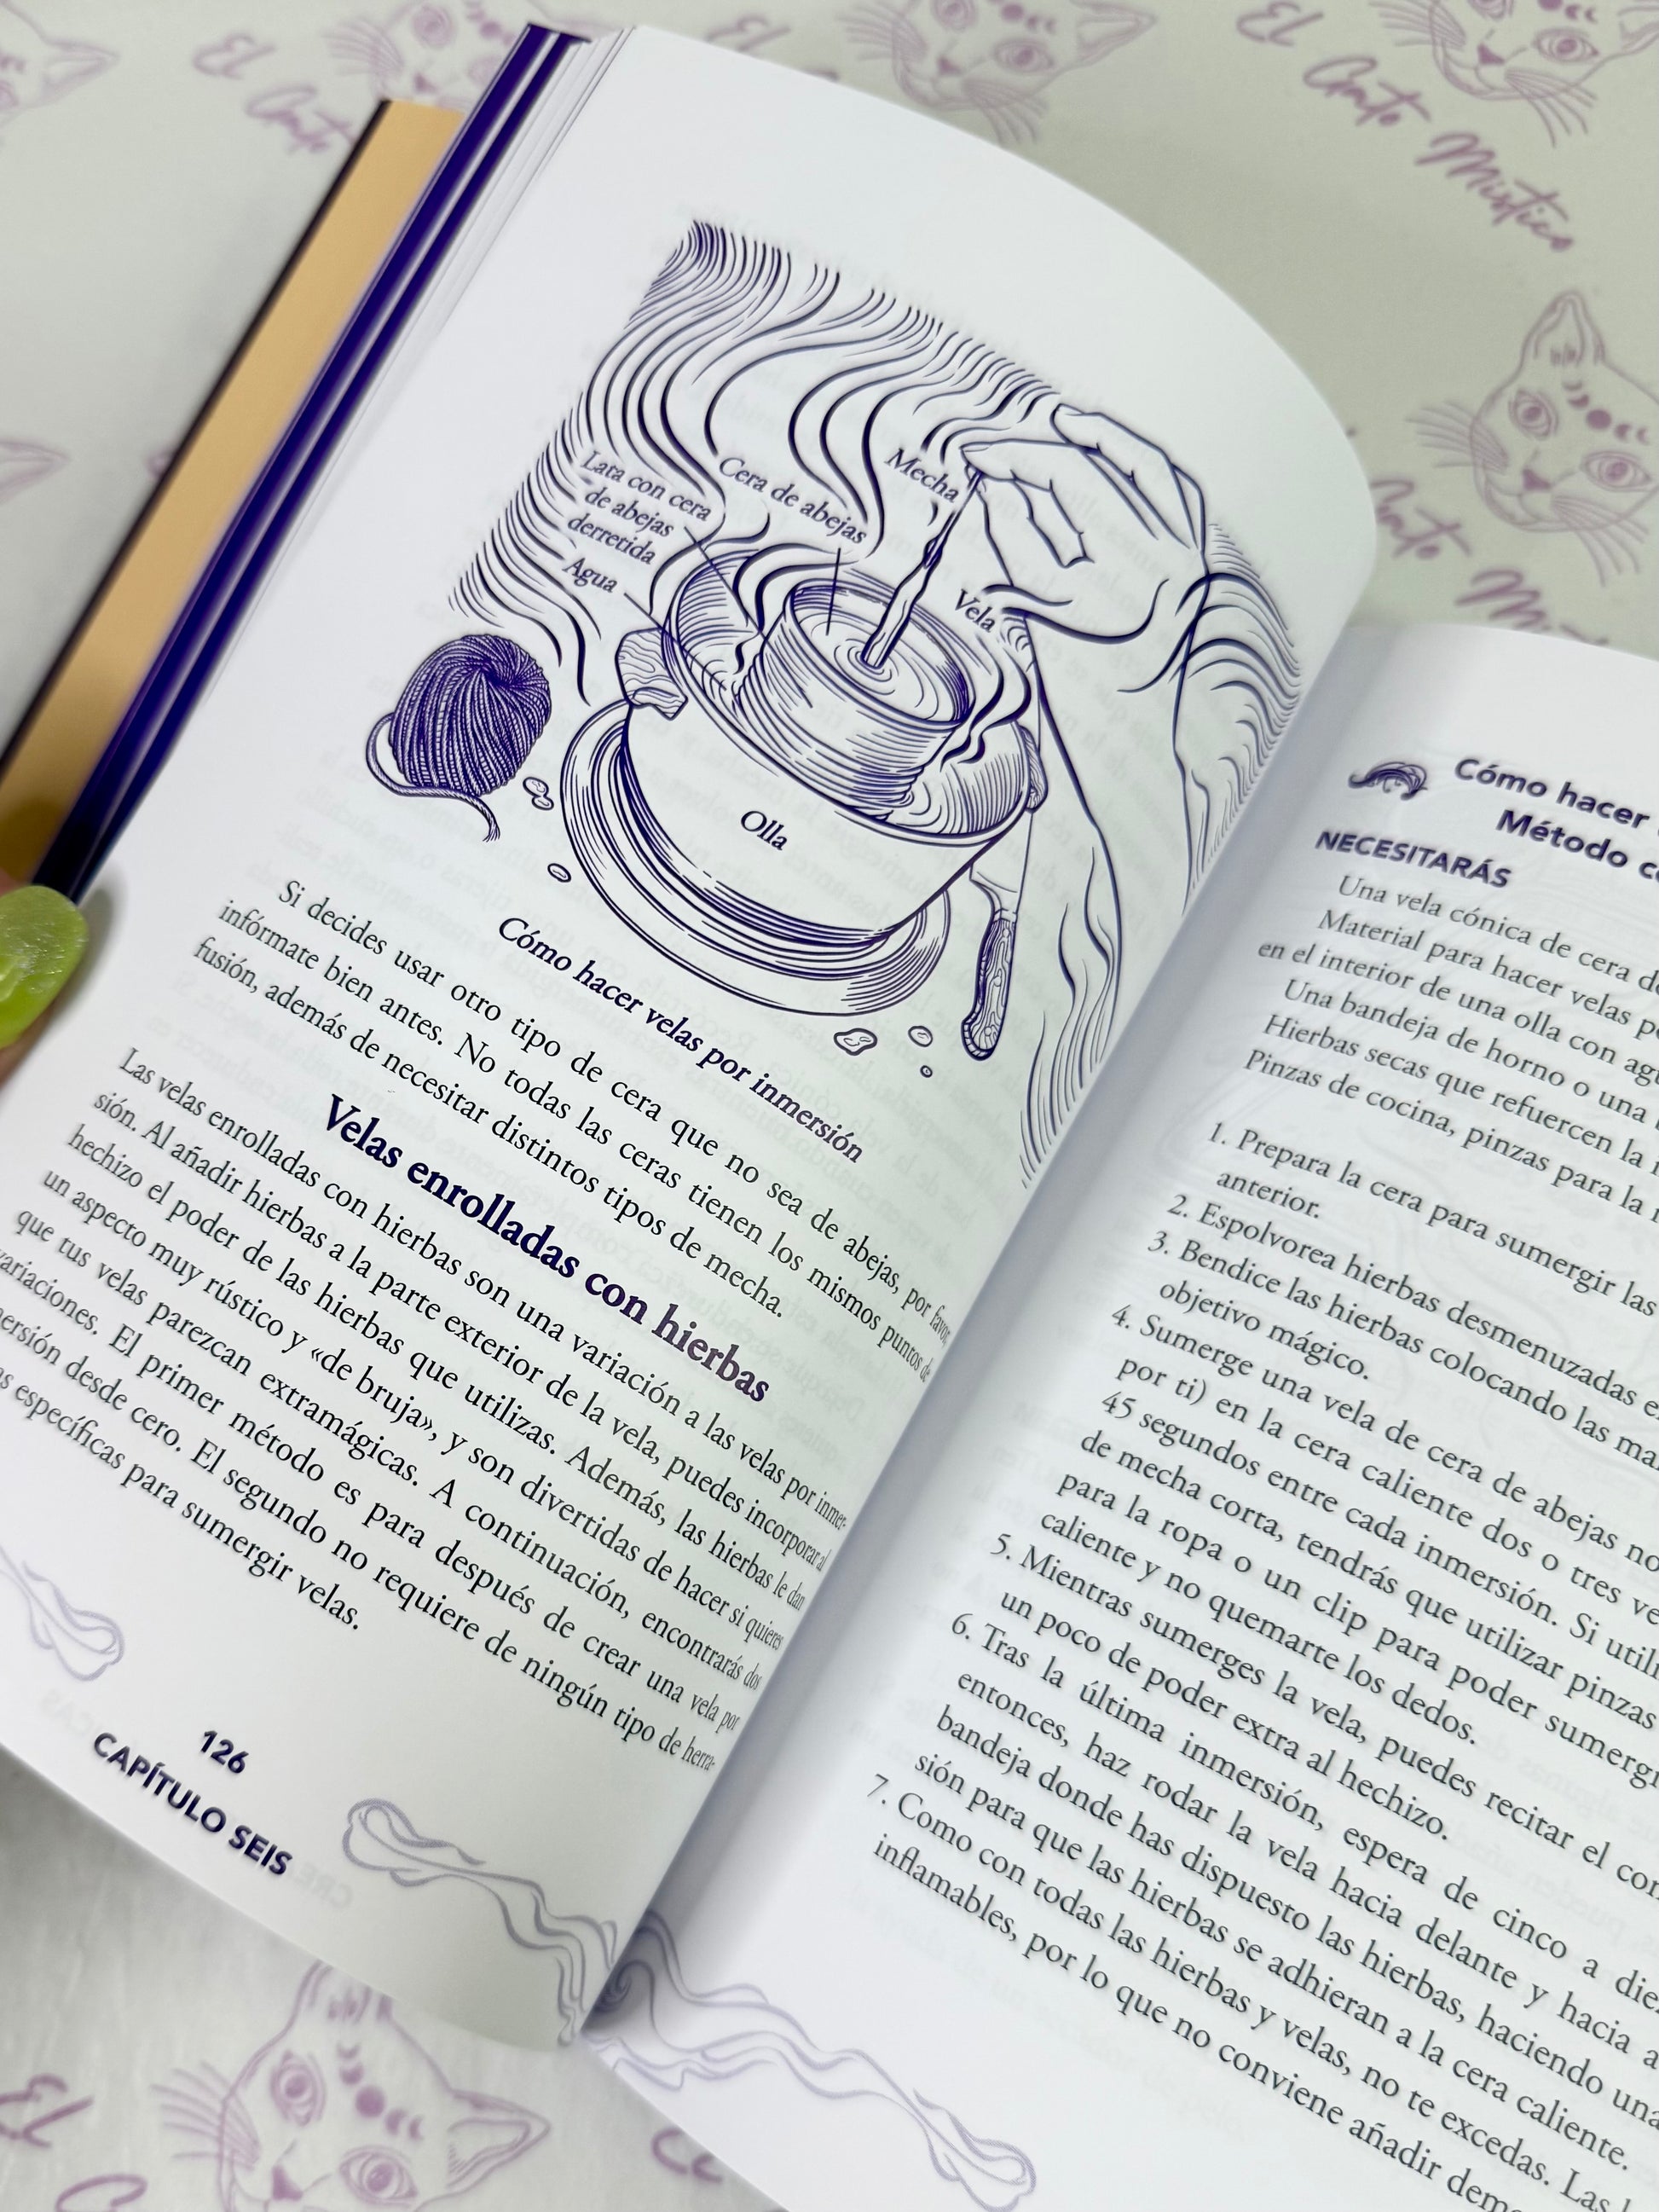 El
Canto
El
Canto
Mistico
Canto
Lata con cera
de abejas
derretida
Cera de abejas
Mecha
Agua
Vela
Olla
Cómo hacer velas por inmersión
Si decides usar otro tipo de cera que no sea de abejas, por favor,
infórmate bien antes. No todas las ceras tienen los mismos puntos de
fusión, además de necesitar distintos tipos de mecha.
Velas enrolladas con hierbas
Las velas enrolladas con hierbas son una variación a las velas por inmer-
sión. Al añadir hierbas a la parte exterior de la vela, puedes incorporar al
hechizo el poder de las hierbas que utilizas. Además, las hierbas le dan
un aspecto muy rústico y «de bruja», y son divertidas de hacer si quieres
que tus velas parezcan extramágicas. A continuación, encontrarás dos
variaciones. El primer método es para después de crear una vela por
mersión desde cero. El segundo no requiere de ningún tipo de herra-
s específicas para sumergir velas.
126
CAPÍTULO SEIS
Cómo hacer
Método
NECESITARÁS
Una vela cónica de cera
Material para hacer velas
en el interior de una olla con
Una bandeja de horno o una
Hierbas secas que refuercen la
Pinzas de cocina, pinzas para la
1. Prepara la cera para sumergir las
anterior.
2. Espolvorea hierbas desmenuzadas
3. Bendice las hierbas colocando las
objetivo mágico.
4. Sumerge una vela de cera de abejas
por ti) en la cera caliente dos o tres
45 segundos entre cada inmersión. Si
de mecha corta, tendrás que utilizar pinzas
para la ropa o un clip para poder
caliente y no quemarte los dedos.
5. Mientras sumerges la vela, puedes recitar el
un poco de poder extra al hechizo.
6. Tras la última inmersión, espera de cinco a
entonces, haz rodar la vela hacia delante y hacia
bandeja donde has dispuesto las hierbas, haciendo
sión para que las hierbas se adhieran a la cera caliente.
7. Como con todas las hierbas y velas, no te excedas. Las
inflamables, por lo que no conviene añadir
El